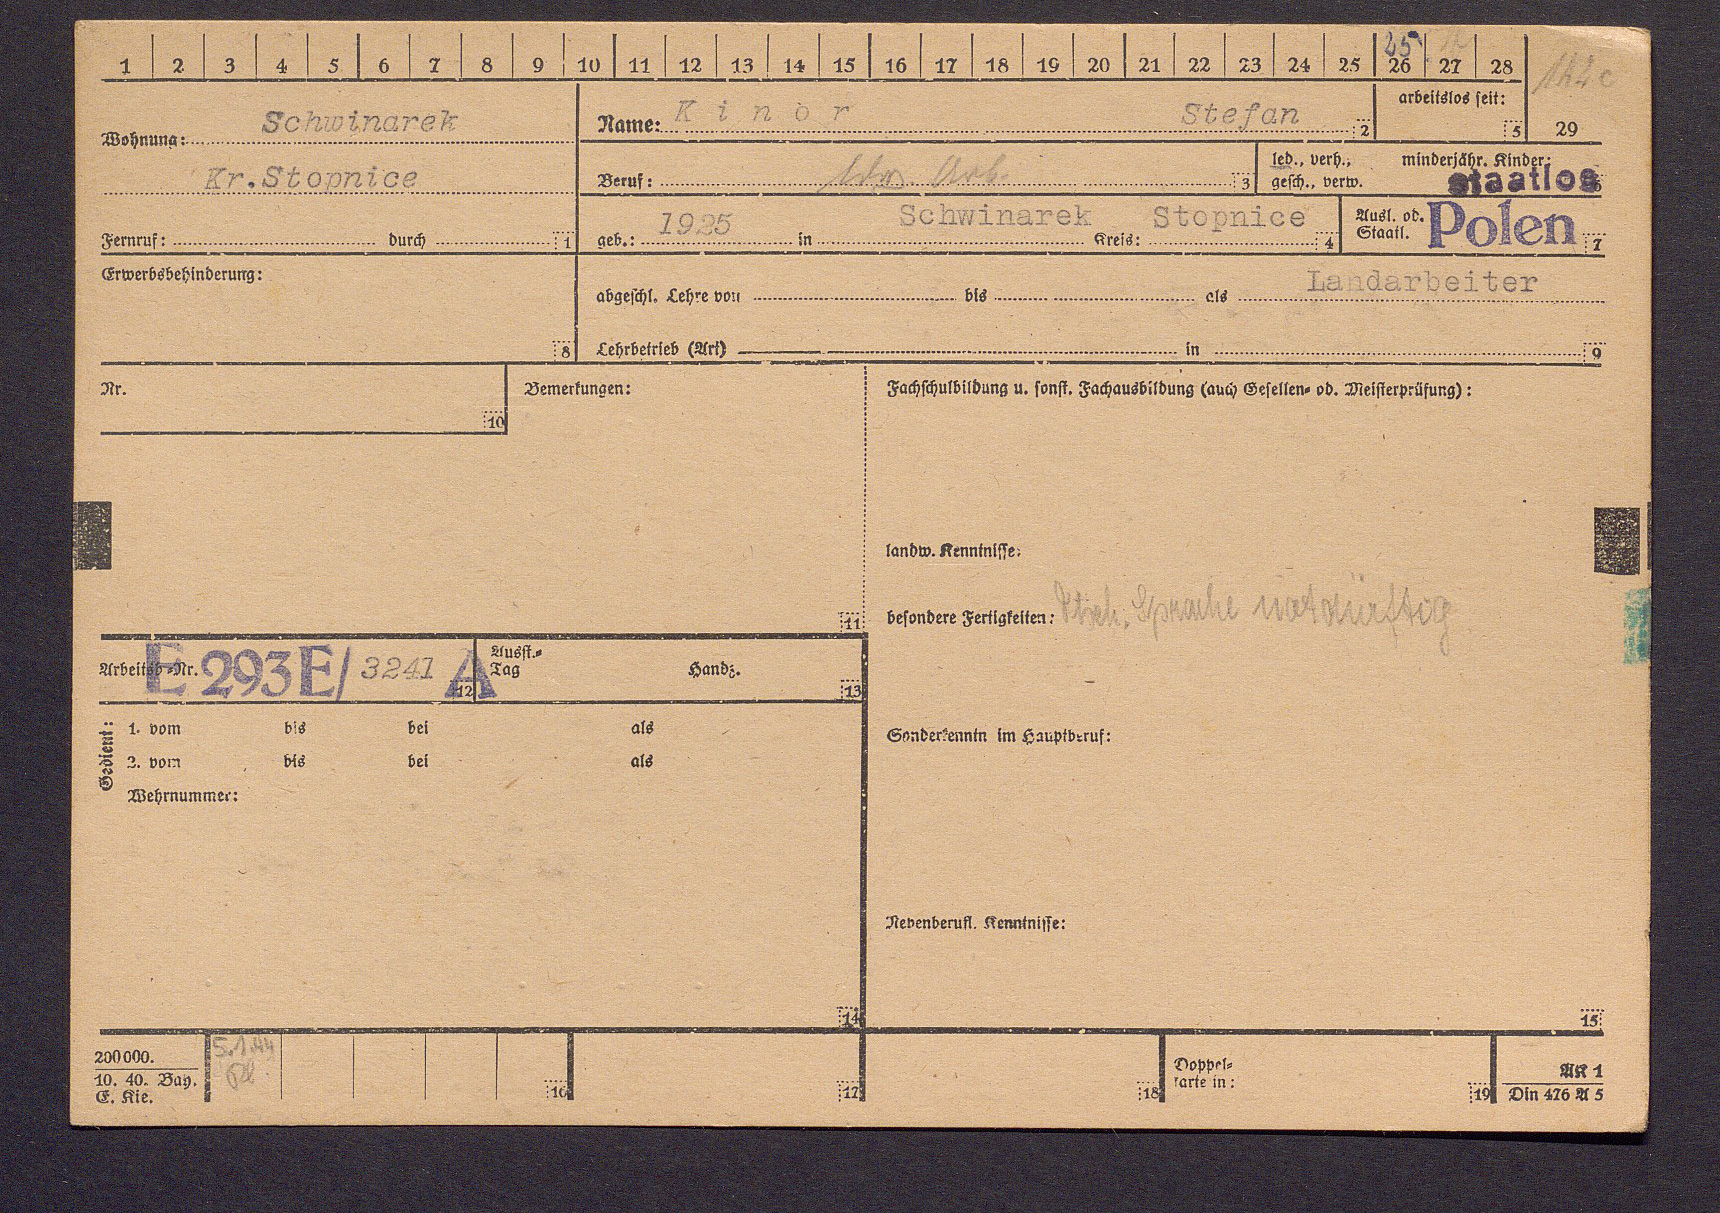 1 2 3 4 5 6 7 8 9 10 11 12 13 14 15 16 17 18 19 20 21 22 23 24 25 26 27 28
25
Wohnung: Schwinarek
Kr.Stopnice
Fernruf: durch 1
Name: Kinor Stefan 2
arbeitslos seit: 5
29
Beruf: Arb. 3
led., verh., gesch., verw.
minderjähr. Kinder: 6
staatlos
geb.: 1925 in Schwinarek Kreis: Stopnice 4
Ausl. od. Staatl. Polen 7
Erwerbsbehinderung:
8
abgeschl. Lehre von bis als Landarbeiter
Lehrbetrieb (Art) in 9
Nr.
10
Bemerkungen:
11
Fachschulbildung u. sonst. Fachausbildung (auch Gesellen- od. Meisterprüfung):
landw. Kenntnisse:
besondere Fertigkeiten: Dtsch. Sprache notdürftig
Arbeitsb-Nr. E 293 E/ 3241 A 12
Ausst.- Tag Handz. 13
Gedient:
1. vom bis bei als
2. vom bis bei als
Wehrnummer:
14
Sonderkenntn im Hauptberuf:
Nebenberufl. Kenntnisse:
15
200000.
10. 40. Bay.
E. Kie.
5.1.44
16
17
18
Doppel-
karte in: 19
AK 1
Din 476 A 5